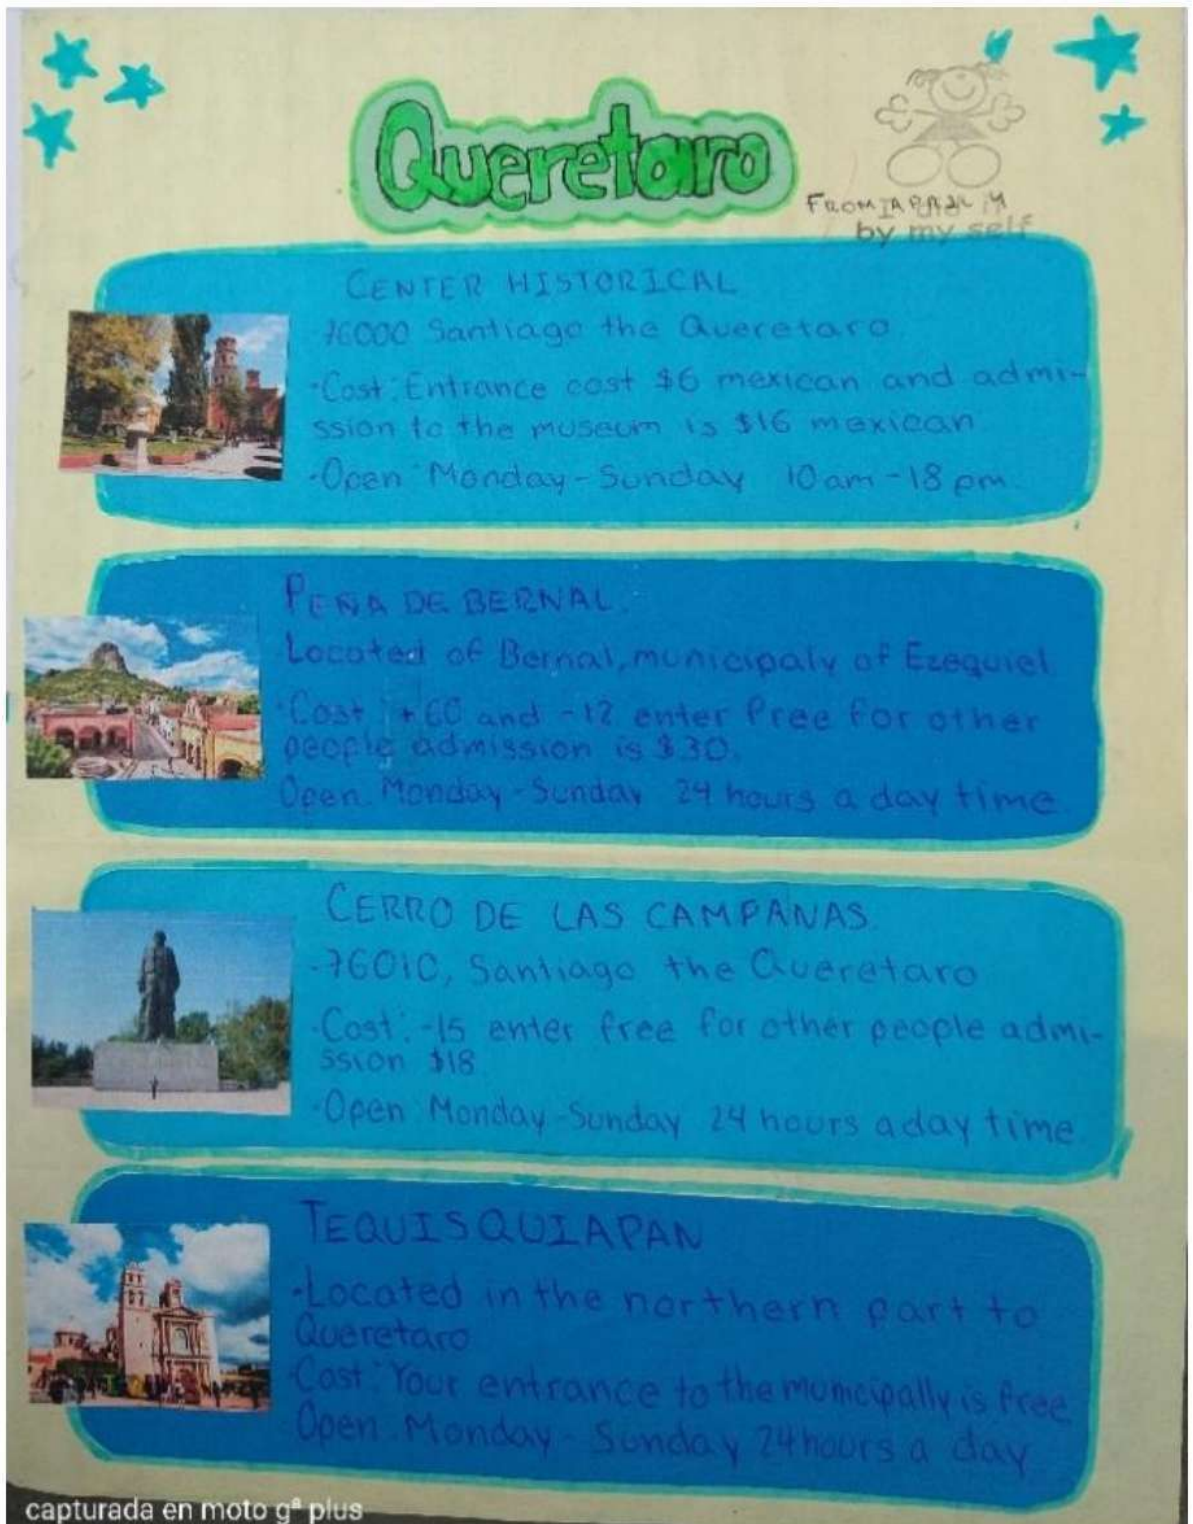 Queretaro
by my self
CENTER HISTORICAL
76000 Santiago the Queretaro
·Cost: Entrance cost $6 mexican and admi-
ssion to the museum is $16 mexican
·Open: Monday-Sunday 10am-18pm
PEÑA DE BERNAL.
Located of Bernal, municipaly of Ezequiel
·Cost: +60 and -12 enter free for other
people admission is $30.
Open: Monday-Sunday 24 hours a day time
CERRO DE LAS CAMPANAS.
·76010, Santiago the Queretaro
·Cost: -15 enter free for other people admi-
ssion $18
·Open: Monday-Sunday 24 hours a day time
TEQUISQUIAPAN
·Located in the northern part to
Queretaro
Cost: Your entrance to the municipally is free
Open: Monday-Sunday 24 hours a day
capturada en moto gª plus